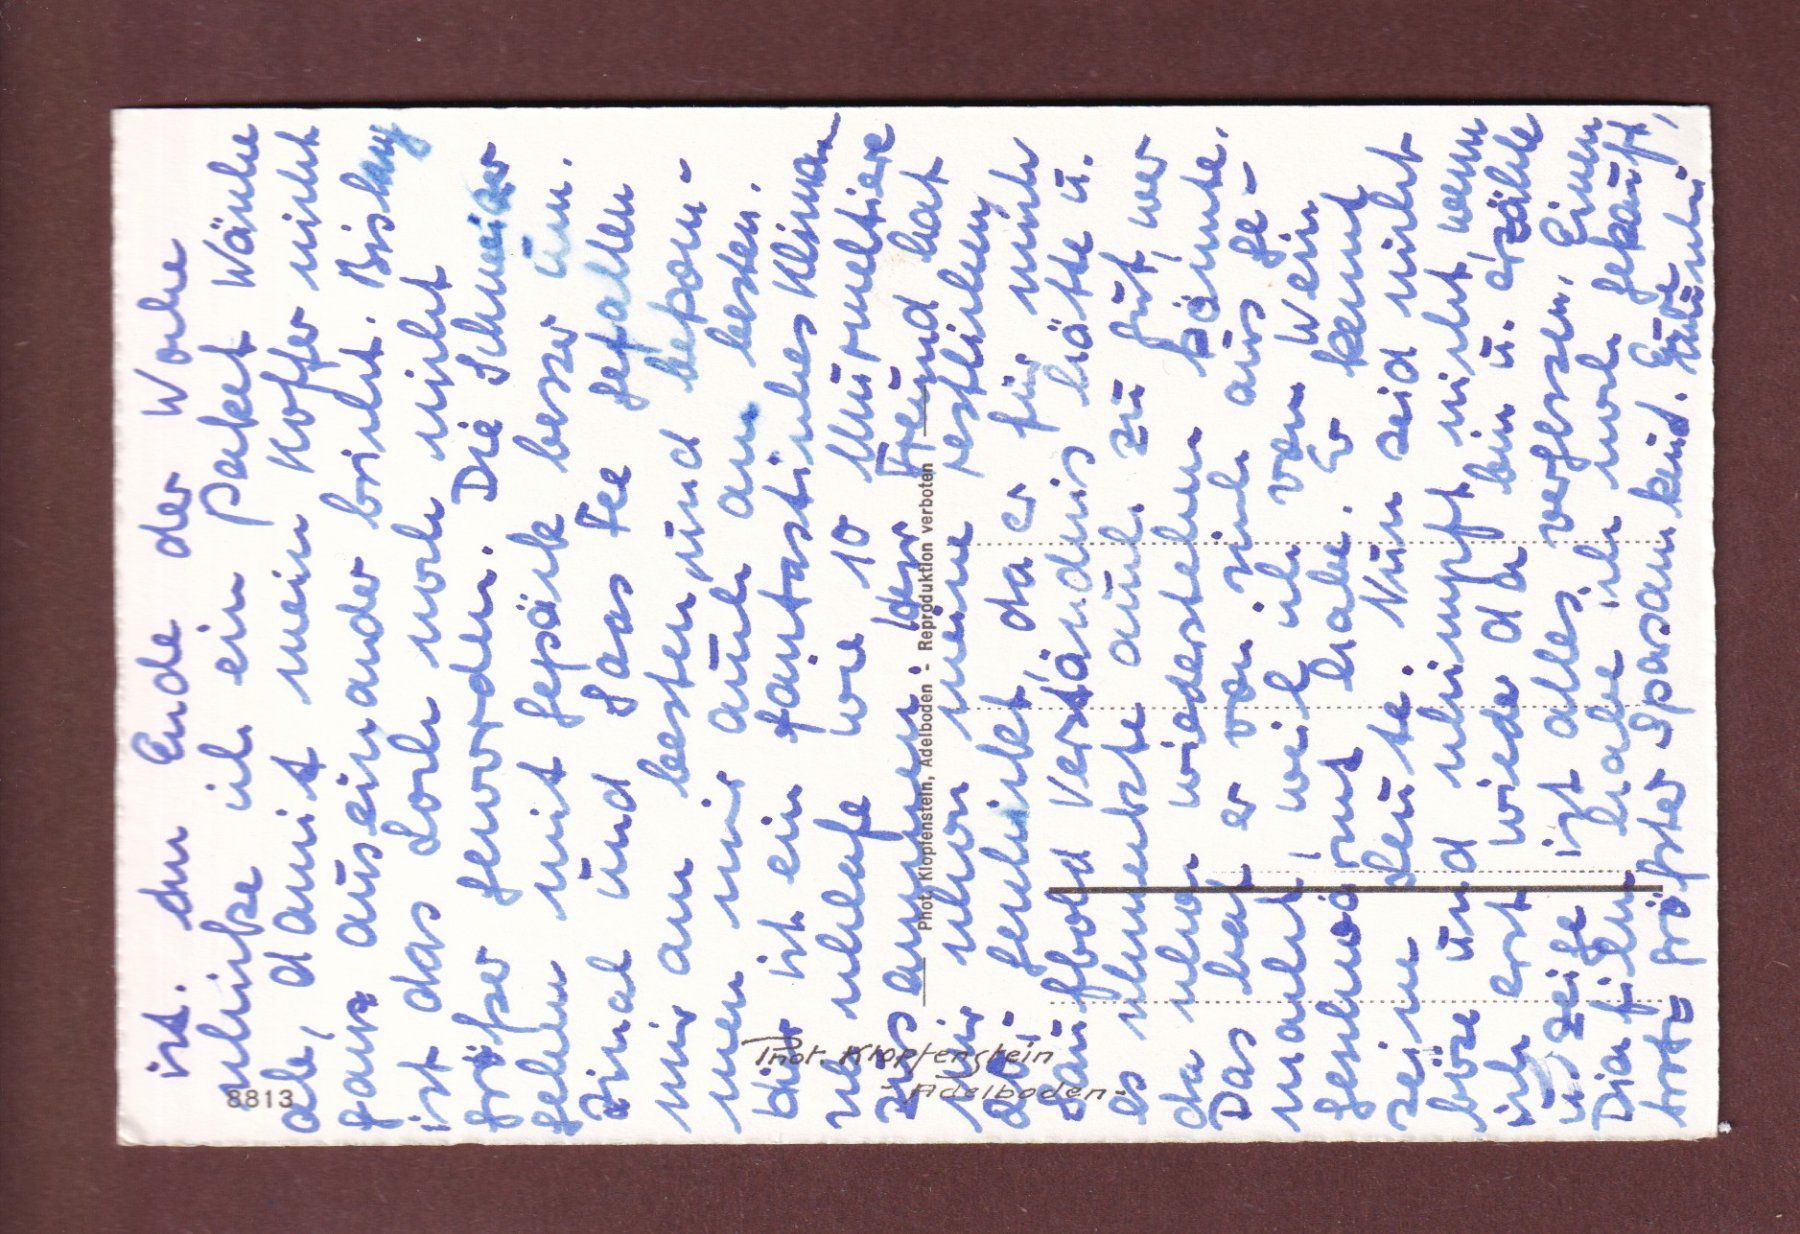 ist. Am Ende der Woche
schicke ich ein Paket Wäsche
ab, damit mein Koffer nicht
ganz auseinander bricht. Bislang
ist das Loch noch nicht
größer geworden. Die Schweizer
gehen mit Gepäck besser um.
Zinal und Saas Fee gefallen
mir am besten und bekom-
men mir auch am besten.
Hier ist ein fantastisches Klima
ich schlafe wie 10 Murmeltiere
zusammen. Der Freund hat
mir schon meine restlichen
geschickt, da er für mich
Verständnis hätte u.
es schmeckte auch zu gut, wer
da schon wiederstehen könnte.
Das hat er von sich aus ge-
macht, weil ich von Wein
geschwärmt habe. Er kennt
seine Leute. Nun seid nicht
böse und schimpft nicht, wenn
ich erst wieder da bin u. erzähle
u. zeige ist alles vergessen. Einen
Diafilm habe ich noch gekauft,
trotz größter Sparsamkeit. Eure
8813
Phot. Klopfenstein, Adelboden - Reproduktion verboten
Phot. Klopfenstein
Adelboden-